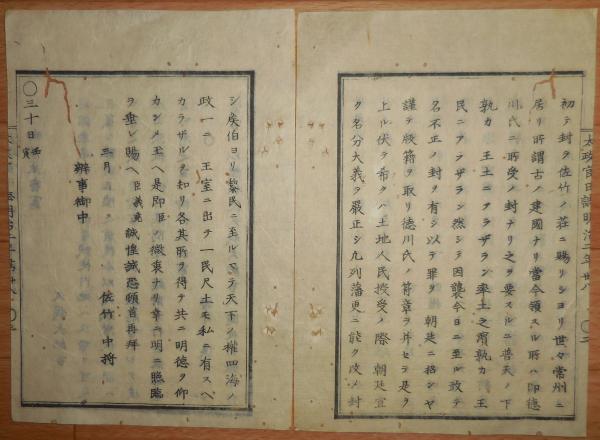 太政官日誌明治二年
初テ封ヲ佐竹ノ荘ニ賜リシヨリ世々常州ニ
居リ所謂古ノ建國ナリ當今領スル所ハ即德
川氏ニ所受ノ封ナリ之ヲ要スルニ普天ノ下
孰カ 王土ニアラザラン率土之濱孰カ 王
民ニアラザラン然シテ因襲今日ニ至ル敢テ
名不正ノ封ヲ有シ以テ罪ヲ 朝廷ニ招ンヤ
謹テ版籍ヲ取リ德川氏ノ券章ヲ并セテ是ヲ
上ル伏テ希クハ土地人民授受ノ際 朝廷宜
ク名分大義ヲ嚴正シ九列藩更ニ能ク改メ封
シ侯伯ヨリ黎民ニ至ルマテ天下ノ權四海ノ
政一ニ 王室ニ出テ一民尺土モ私ニ有スヘ
カラザルヲ知リ各其所ヲ得テ共ニ明德ヲ仰
カシメ玉ヘ是即臣ノ微衷ナリ幸ニ明ニ照臨
ヲ垂レ賜ヘ臣義堯誠惶誠恐頓首再拜
三月 佐竹中将
辨事御中
〇三十日壬寅